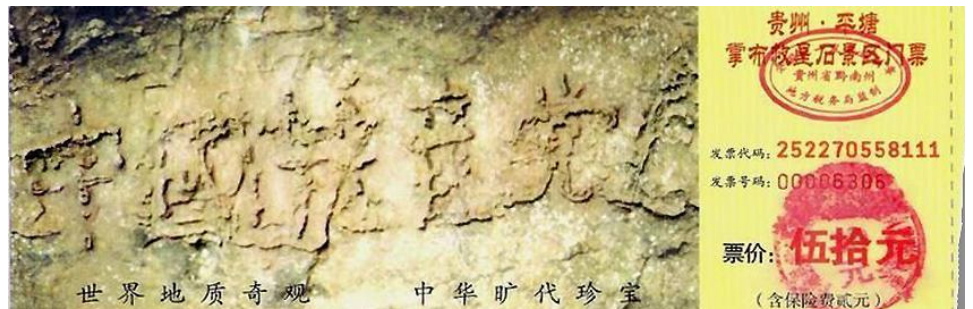 中国共产党亡
世界地质奇观 中华旷代珍宝
贵州·平塘
掌布救星石景区门票
贵州省黔南州
地方税务局监制
发票代码：252270558111
发票号码：00006306
票价：伍拾元
（含保险费贰元）